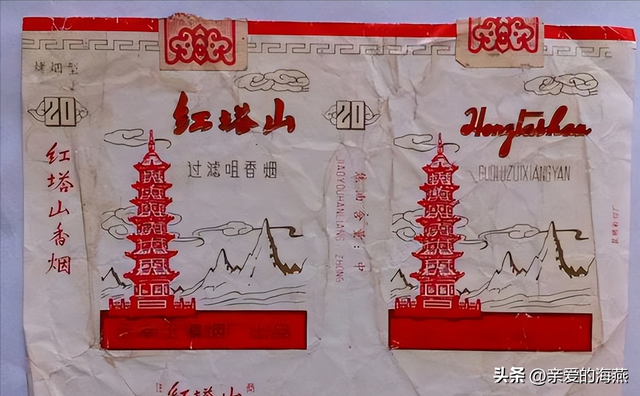 烤烟型
20
红塔山香烟
红塔山
过滤咀香烟
20
JIAOYOUHANLIANG: ZHONG
焦油含量：中
Hongtashan
GUOLUZUIXIANGYAN
红塔山
头条 @亲爱的海燕